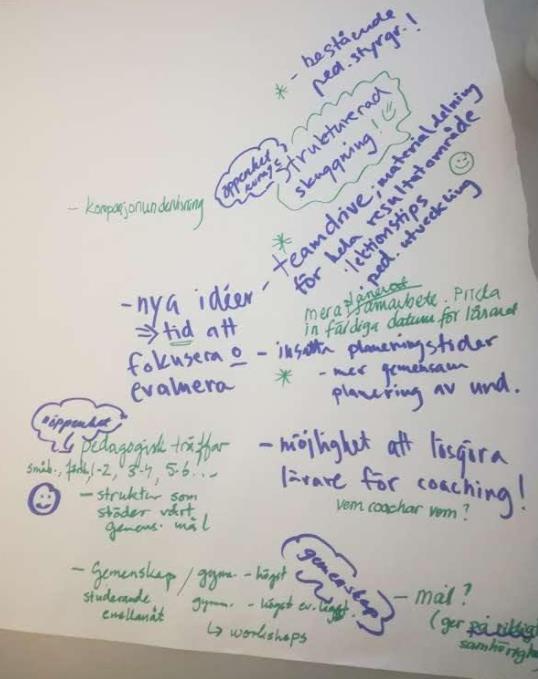 * - bestående
ped. styrgr.!
öppenhet
strukturerad
skuggning!
- kompanjonundervisning
* teamdrive, materialdelning
för hela resultatområde
lektionstips
ped. utveckling
- nya idéer -
⇒ tid att
fokusera o
evaluera
mera planerat
samarbete. Pricka
in färdiga datum för lärare
- insatta planeringstider
* - mer gemensam
planering av und.
öppenhet
pedagogisk träffar
småb., förb, 1-2, 3-4, 5-6...
- struktur som
stöder vårt
gemens. mål
- möjlighet att lösgöra
lärare för coaching!
vem coachar vem?
gemenskap
- Gemenskap / gymn. - högst
studerande
emellanåt
gymn. - högst ev. lägst.
↳ workshops
- mål?
(ger på riktigt
samhörighe